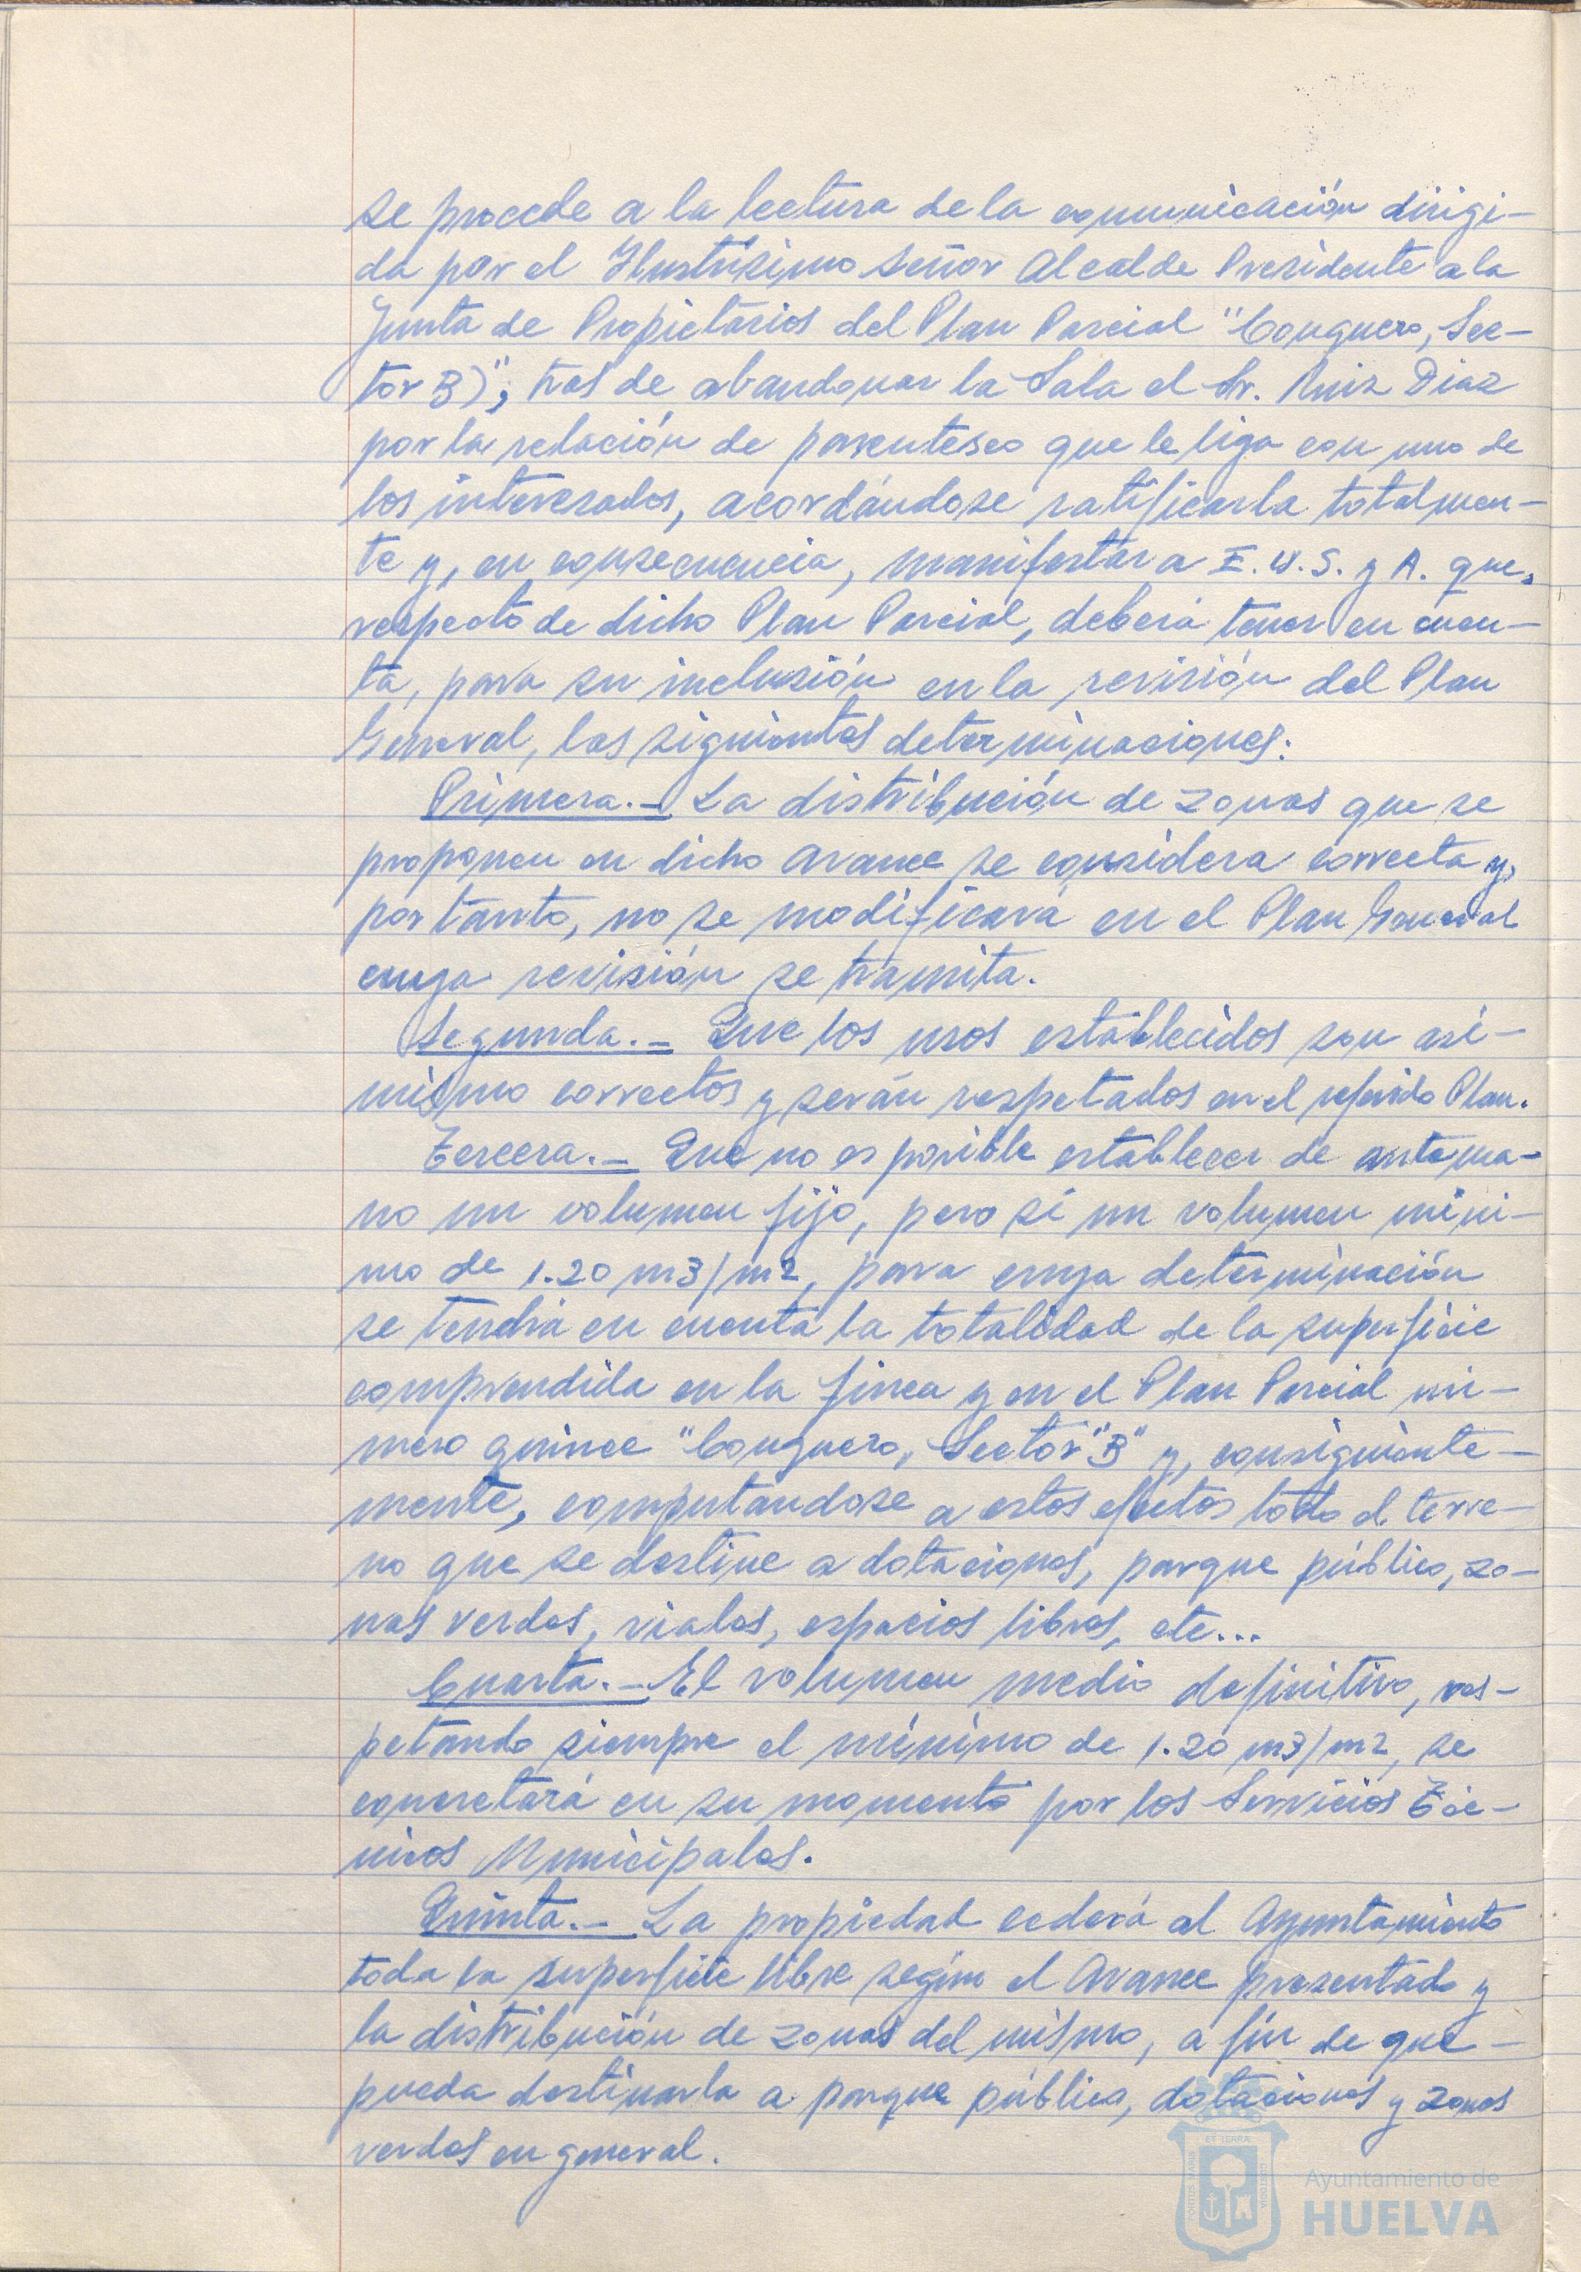 se procede a la lectura de la comunicación dirigi-
da por el Ilustrísimo Señor Alcalde Presidente a la
Junta de Propietarios del Plan Parcial "Conquero, Sec-
tor B)"; tras de abandonar la Sala el Sr. Ruiz Diaz
por la relación de parentesco que le liga con uno de
los interesados, acordándose ratificarla totalmen-
te y, en consecuencia, manifestar a I.U.S. y A. que,
respecto de dicho Plan Parcial, deberá tener en cuen-
ta, para su inclusión en la revisión del Plan
General, las siguientes determinaciones:
Primera.- La distribución de zonas que se
proponen en dicho avance se considera correcta y,
por tanto, no se modificará en el Plan General
cuya revisión se tramita.
Segunda.- Que los usos establecidos son asi-
mismo correctos y serán respetados en el referido Plan.
Tercera.- Que no es posible establecer de antema-
no un volumen fijo, pero sí un volumen míni-
mo de 1.20 m3/m2, para cuya determinación
se tendrá en cuenta la totalidad de la superficie
comprendida en la finca y en el Plan Parcial nú-
mero quince "Conquero, Sector "B" y, consiguiente-
mente, computandose a estos efectos todo el terre-
no que se destine a dotaciones, parque público, zo-
nas verdes, viales, espacios libres, etc...
Cuarta.- El volumen medio definitivo, res-
petando siempre el mínimo de 1.20 m3/m2, se
concretará en su momento por los Servicios Téc-
nicos Municipales.
Quinta.- La propiedad cederá al Ayuntamiento
toda la superficie libre según el Avance presentado y
la distribución de zonas del mismo, a fin de que -
pueda destinarla a parque público, dotaciones y zonas
verdes en general.
Ayuntamiento de
HUELVA